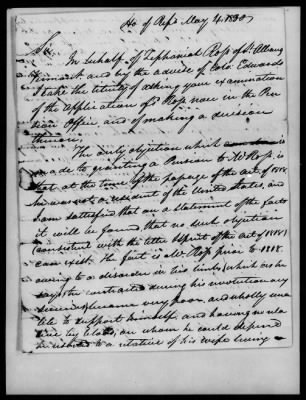 Ho of Reps May 4. 1830
Sir
In behalf of Zephaniah Ross of St Albans
Vermont and by the advice of Colo. Edwards
I take the liberty of asking your examination
of the application of Mr Ross now in the Pen-
sion Office and of making a decision
thereon.
The only objection which
made to granting a Pension to Mr Ross is
that at the time of the passage of the act of 1818
he was not a resident of the United States, and
I am satisfied that on a statement of the facts
it will be found that no such objection
(consistent with the letter & spirit of the act of 1818)
can exist. The fact is Mr Ross prior to 1818
owing to a disorder in his limbs (which as he
says he contracted during his revolutionary
services) became very poor, and wholly una-
ble to support himself, and having no rela-
tive by blood, on whom he could depend
he to a relative of his wife living